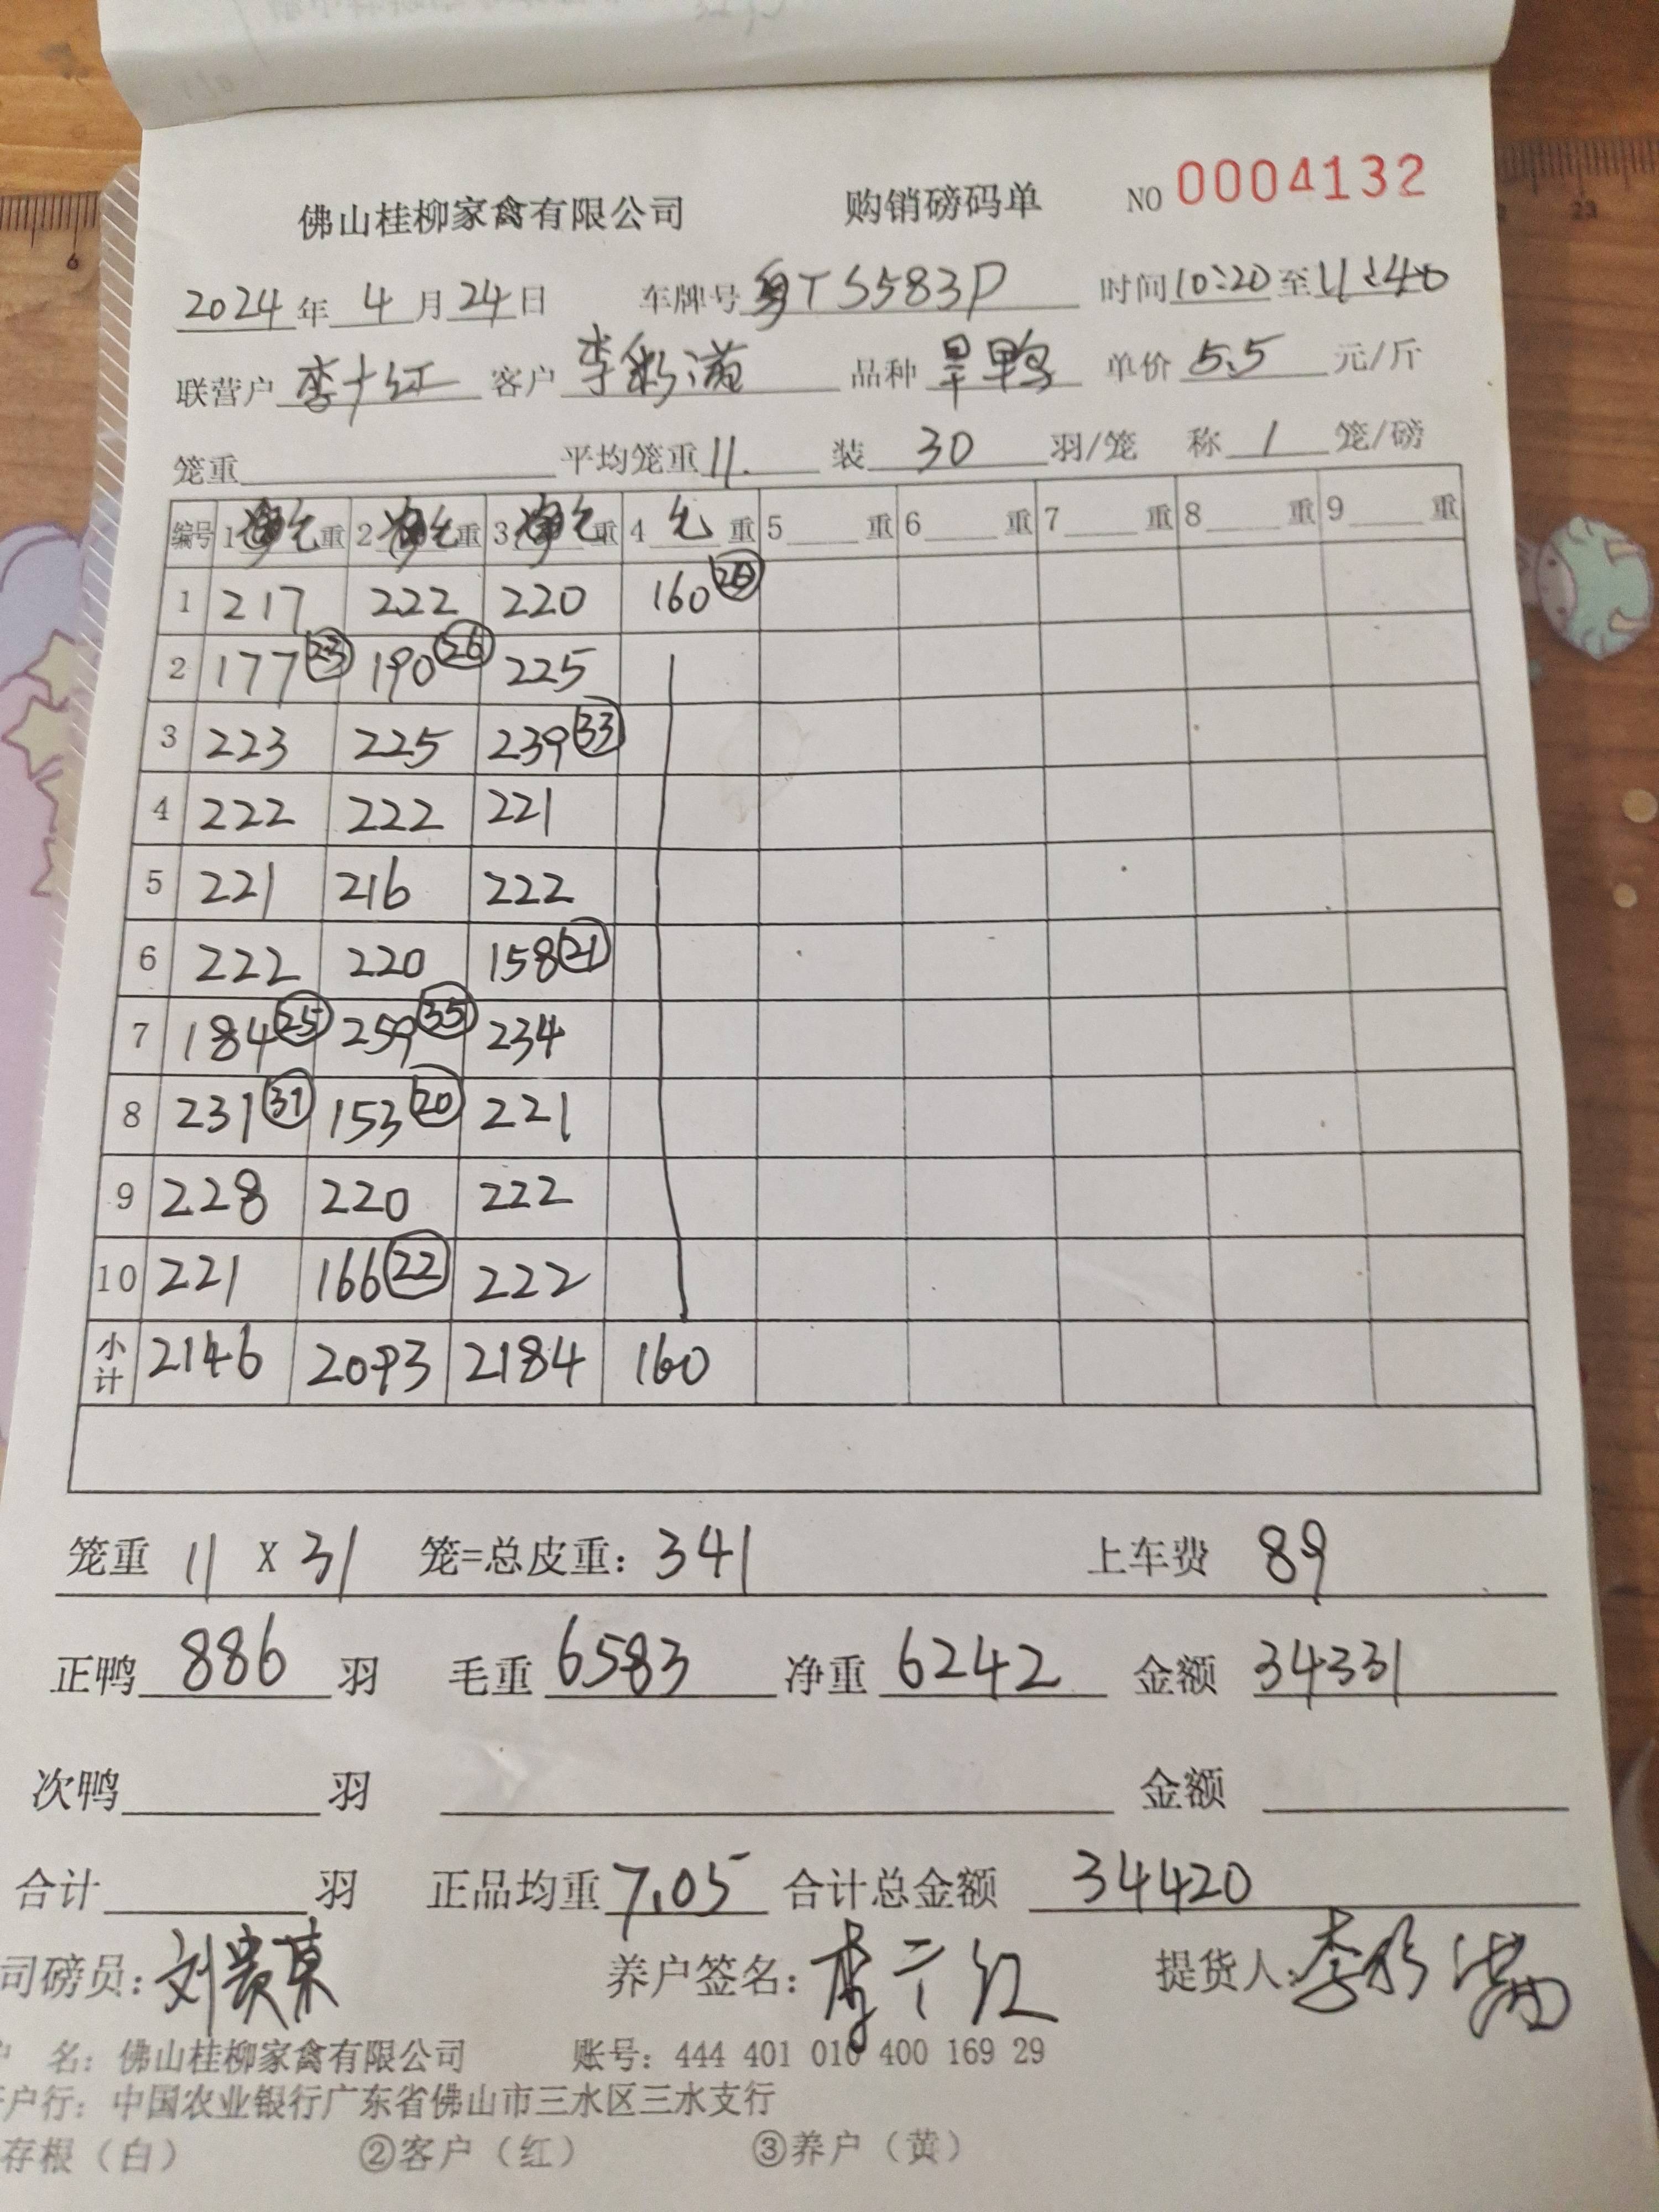 佛山桂柳家禽有限公司 购销磅码单 NO 0004132
2024年 4月24日 车牌号粤TS583P 时间10:20至11:40
联营户 李十红 客户 李彩满 品种 旱鸭 单价 5.5 元/斤
笼重 平均笼重 11. 装 30 羽/笼 称 1 笼/磅
编号 1 毛重 2 毛重 3 毛重 4 毛 重 5 重 6 重 7 重 8 重 9 重
1 217 222 220 160 ㉠
2 177 ㉓ 190 ㉖ 225
3 223 225 239 ㉝
4 222 222 221
5 221 216 222
6 222 220 158 ㉑
7 184 ㉕ 259 ㉟ 234
8 231 ㉛ 153 ⑳ 221
9 228 220 222
10 221 166 ㉒ 222
小计 2146 2093 2184 160
笼重 11 X 31 笼=总皮重: 341 上车费 89
正鸭 886 羽 毛重 6583 净重 6242 金额 34331
次鸭 羽 金额
合计 羽 正品均重 7.05 合计总金额 34420
司磅员: 刘贵 养户签名: 李十红 提货人: 李彩满
户 名: 佛山桂柳家禽有限公司 账号: 444 401 010 400 169 29
户行: 中国农业银行广东省佛山市三水区三水支行
存根(白) ②客户(红) ③养户(黄)